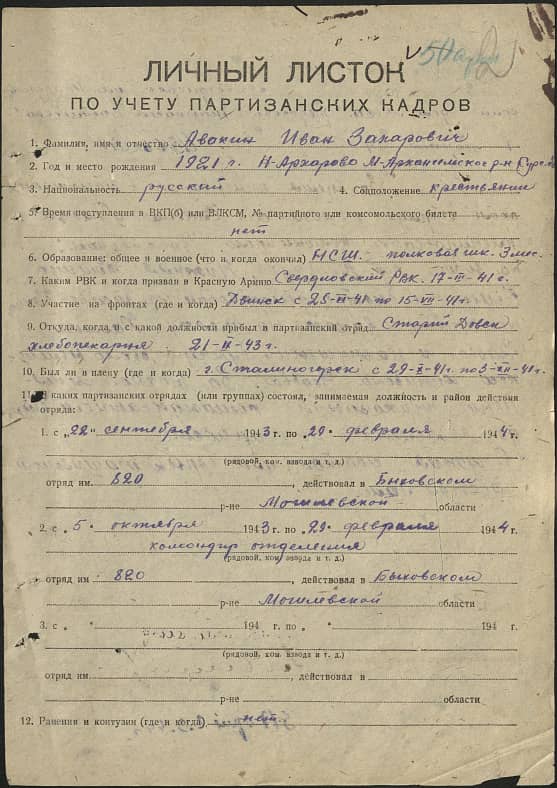 ЛИЧНЫЙ ЛИСТОК
ПО УЧЕТУ ПАРТИЗАНСКИХ КАДРОВ
1. Фамилия, имя и отчество Авакин Иван Захарович
2. Год и место рождения 1921 г. Н-Архарово М-Архангельского р-н
3. Национальность русский 4. Соцположение крестьянин
5. Время поступления в ВКП(б) или ВЛКСМ, № партийного или комсомольского билета
нет
6. Образование: общее и военное (что и когда окончил) НСШ. полковая шк. 3 мес.
7. Каким РВК и когда призван в Красную Армию Свердловский РВК 17-III-41 г.
8. Участие на фронтах (где и когда) Двинск с 25-VI-41 по 15-VII-41 г.
9. Откуда, когда и с какой должности прибыл в партизанский отряд Старый Довск
хлебопекарня 21-IX-43 г.
10. Был ли в плену (где и когда) г. Сталиногорск с 29-X-41 по 3-XII-41 г.
11. В каких партизанских отрядах (или группах) состоял, занимаемая должность и район действия
отряда:
1. с „22“ сентября 1943 г. по „29“ февраля 1944 г.
(рядовой, ком. взвода и т. д.)
отряд им. 820, действовал в Быховском
р-не Могилевской области
2. с „5“ октября 1943 г. по „29“ февраля 1944 г.
командир отделения
(рядовой, ком. взвода и т. д.)
отряд им 820, действовал в Быховском
р-не Могилевской области
3. с „ “ 194 г. по „ “ 194 г.
(рядовой, ком. взвода и т. д.)
отряд им. , действовал в
р-не области
12. Ранения и контузии (где и когда) нет.